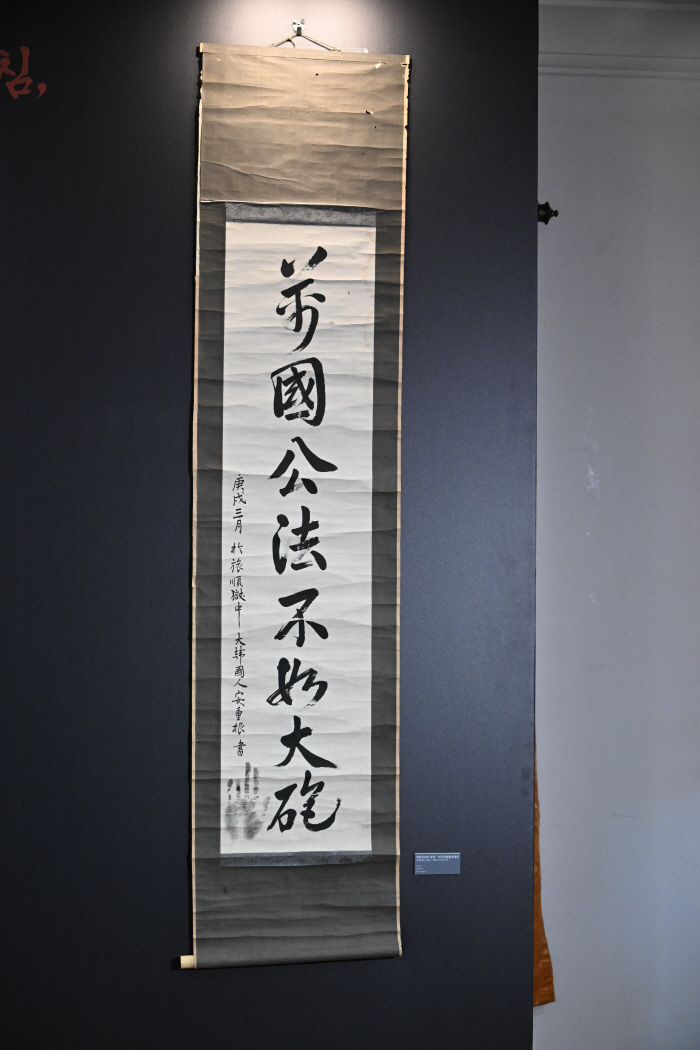 침,
萬國公法不如大砲
庚戌三月 於旅順獄中 大韓國人 安重根 書